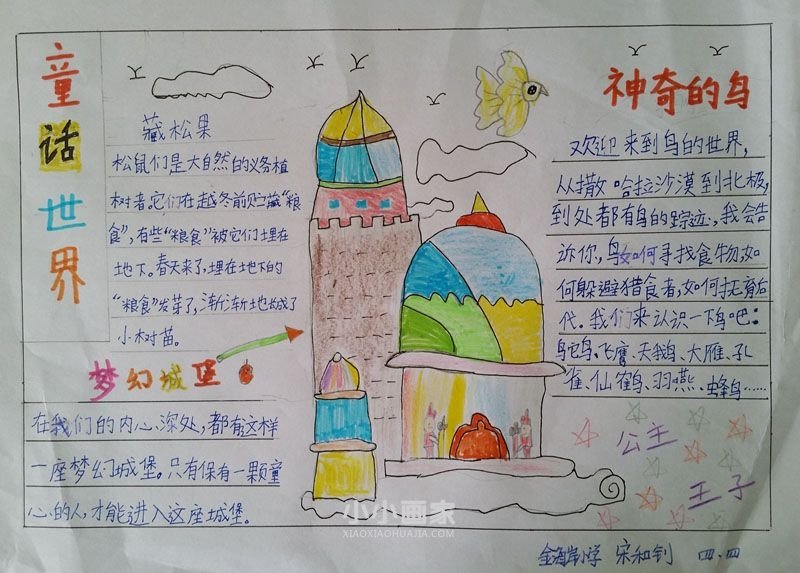 童话世界
藏松果
松鼠们是大自然的义务植
树者。它们在越冬前贮藏“粮
食”，有些“粮食”被它们埋在
地下。春天来了，埋在地下的
“粮食”发芽了，渐渐地长成了
小树苗。
梦幻城堡
在我们的内心深处，都有这样
一座梦幻城堡。只有保有一颗童
心的人才能进入这座城堡。
神奇的鸟
欢迎来到鸟的世界，
从撒哈拉沙漠到北极，
到处都有鸟的踪迹，我会告
诉你，鸟如何寻找食物，如
何躲避猎食者，如何抚育后
代。我们来认识一下鸟吧：
鸵鸟、飞鹰、天鹅、大雁、孔
雀、仙鹤、羽燕、蜂鸟……
公主
王子
小小画家
XIAOXIAOHUAJIA.COM
金海岸小学 宋和钊 四、四